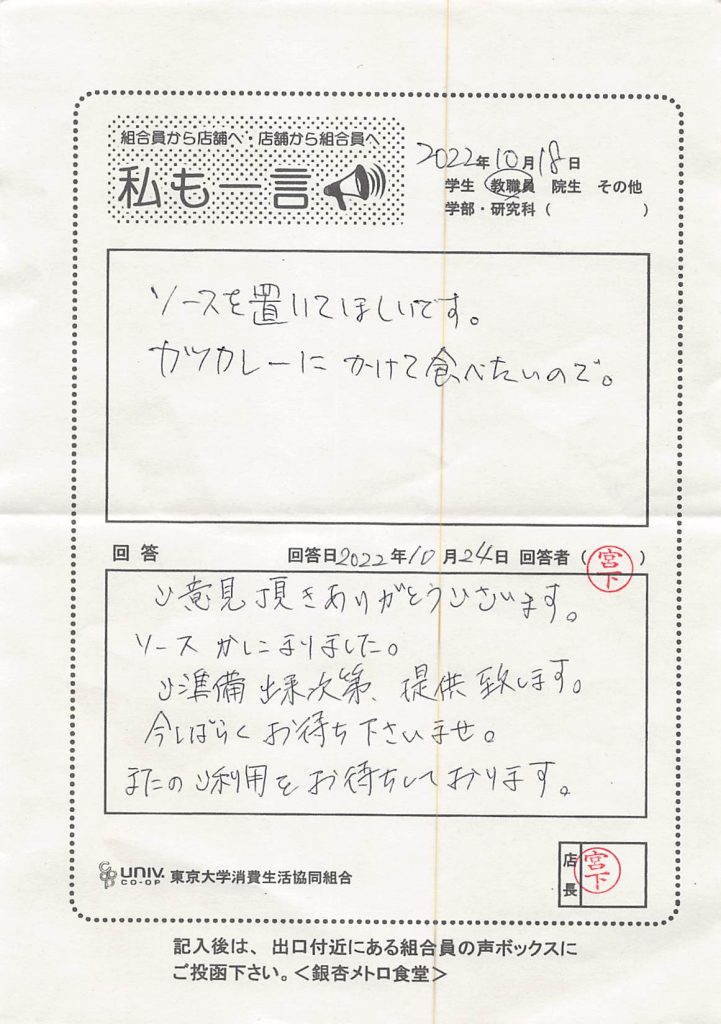 組合員から店舗へ・店舗から組合員へ
私も一言
2022年10月18日
学生 教職員 院生 その他
学部・研究科（ ）
ソースを置いてほしいです。
カツカレーにかけて食べたいので。
回答 回答日2022年10月24日 回答者（宮下）
ご意見頂きありがとうございます。
ソースかしこまりました。
ご準備出来次第、提供致します。
今しばらくお待ち下さいませ。
またのご利用をお待ちしております。
UNIV. CO-OP 東京大学消費生活協同組合
店長 宮下
記入後は、出口付近にある組合員の声ボックスに
ご投函下さい。＜銀杏メトロ食堂＞